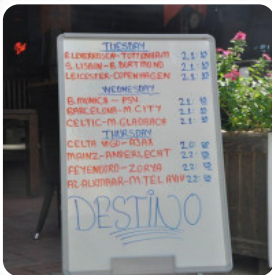 TUESDAY
B. LEVERKUSEN-TOTTENHAM 21:10
S. LISBON-B. DORTMUND 21:10
LEICESTER-COPENHAGEN 21:10
WEDNESDAY
B. MONICA - PSV 21:10
BARCELONA-M. CITY 21:10
CELTIC-M. GLADBACH 21:10
THURSDAY
CELTA VIGO-AJAX
MAINZ-ANDERLECHT
FEYENOORD-ZORYA
AZ ALKMAAR-M. TEL AVIV
DESTINO